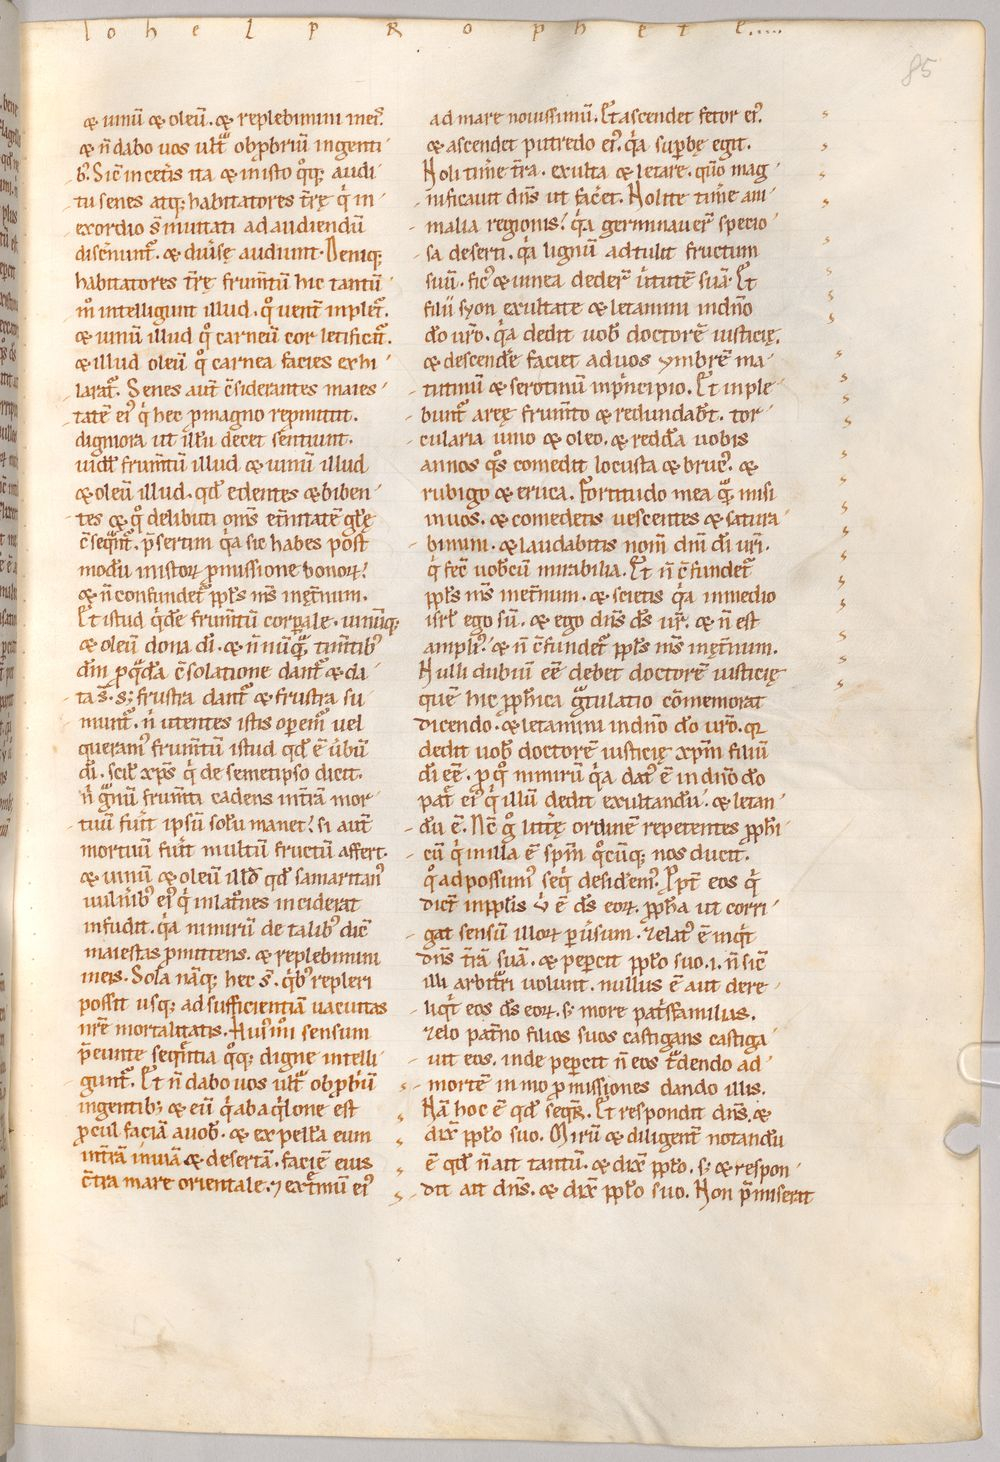 Iohel PRophete.....
85
& uinū & oleū. & replebimini meis̉.
& n̄ dabo uos ult͛ obp̱briū in genti
b;. Sic̄ in cet̉is ita & in isto q̊q; audi
tu senes atq; habitatores t̄rę q̇ in
exordio s̄ inuitati ad audiendū
discernunt͛. & diuīsę audiunt. Deniq;
habitatores t̄rę frum̄tū hic tantū
m̊ intelligunt illud. q̊ uent̄ inplet͛.
& uinū illud q̊ carneū cor letificat͛.
& illud oleū q̊ carnea facies exhi
larat͛. Senes aut̄ c̄siderantes maies
tatē eiꝰ q̇ hec ꝓ magno repmittit.
digniora ut illū decet sentiunt.
uidel̄ frum̄tū illud & uinū illud
& oleū illud. qd̄ edentes & biben
tes & q̊ delibuti om̄s et̄nitatē gl̄ę
c̄seq̄nt͛. p̄sertim q̇a sic habes post
modū in istoꝝ ꝓmissione bonoꝝ.
& n̄ confundet͛ ppl̄s m̄s inęt̄num.
Et istud q̇dē frum̄tū corꝑale. uinūq;
& oleū dona dī. & n̄ nūq͛ tim̄tibꝰ
dm̄ ꝓ q̇dā c̄solatione dant͛ & da
ta s̄. s; frustra dant͛ & frustra su
munt͛. n̄ utentes istis opemꝰ uel
queramꝰ frum̄tū istud qd̄ ē ūbū
dī. scil̄ xp̄s q̇ de semetipso dicit.
n̄ g͛nū frum̄ti cadens in t̄rā mor
tuū fūit ipsū solū manet. si aut̄
mortuū fūit multū fructū affert.
& uinū & oleū illd̄ qd̄ samaritanꝰ
uuln̄ibꝰ eiꝰ q̇ in latrōnes inciderat
infudit. q̇a nimirū de talibꝰ dic̄
maiestas ꝓmittens. & replebimini
meis. Sola nāq; hec s̄. q̇bꝰ repleri
possit usq; ad sufficientiā uacuitas
nr̄e mortalitatis. Huiꝰmōi sensum
p̄eunte seq̄ntia q̊q; digne intelli
gunt͛. Et n̄ dabo uos ult͛ obp̱briū
in gentib; & eū q̇ ab aq̇lone est
ꝓcul faciā a uob̄. & expellā eum
in t̄rā inuiā & desertā. faciē eius
c̄tra mare orientale. ⁊ extmū eiꝰ
ad mare nouissimū. Et ascendet fetor eiꝰ.
& ascendet putredo eiꝰ. q̇a suꝑbę egit.
Noli tim̄e t̄ra. exulta & letare. qm̄o mag
nificauit dn̄s ut facēt. Nolite tim̄e ani
malia regionis. q̇a germinauer̄ specio
sa deserti. q̇a lignū adtulit fructum
suū. ficꝰ & uinea deder̄ uirtutē suā. Et
filii syon exultate & letamini in dn̄o
dō uro. q̇a dedit uob̄ doctorē iusticię.
& descendē faciet ad uos ymbrē ma
tutinū & serotinū in p̄ncipio. Et inple
bunt͛ aręę frum̄to & redundab̄t. tor
cularia uino & oleo. & reddā uobis
annos q̊s comedit locusta & brucꝰ. &
rubigo & eruca. Fortitudo mea q͛ misi
in uos. & comedetis uescentes & satura
bimini. & laudabitis nom̄ dn̄i dī urī.
q̇ fec̄ uob̄cū mirabilia. Et n̄ c̄fundet͛
ppl̄s m̄s inet̄num. & scietis q̇a in medio
isrl̄ ego sū. & ego dn̄s ds̄ ur̄. & n̄ est
ampliꝰ. & n̄ c̄fundet͛ ppl̄s m̄s inęt̄num.
Nulli dubiū eē debet doctorē iusticię
quē hic pph̄ica g͛tulatio cōmemorat
dicendo. & letamini in dn̄o dō uro. qꝛ
dedit uob̄ doctorē iusticię xp̄m filiū
dī eē. ꝓ q̊ nimirū q̇a datꝰ ē in dn̄o dō
pat̄ eiꝰ q̇ illū dedit exultandū. & letan
dū ē. Nc̄ g̊ litt̄ę ordinē repetentes pph̄i
cū q̇ in illa ē spm̄ q̊cūq; nos ducit.
q̊ad possumꝰ seq̇ desid̄emꝰ. Ppt̄ eos q̇
dict̄ in ppl̄is ů ē ds̄ eoꝝ. pph̄a ut corri
gat sensū illoꝝ ꝑuīsum. zelatꝰ ē inq̇t
dn̄s t̄rā suā. & peꝑcit ppl̄o suo .i. n̄ sic̄
illi arbitri uolunt. nullus ē aut dere
liq̇t eos ds̄ eoꝝ. s; more pat̄sfamilias.
zelo pat̄no filios suos castigans castiga
uit eos. inde peꝑcit n̄ eos t͛dendo ad
mortē immo ꝓmissiones dando illis.
Nā hoc ē qd̄ seq̄r̄. Et respondit dn̄s. &
dix̄ ppl̄o suo. Mirū & diligent̄ notandū
ē qd̄ n̄ ait tantū. & dix̄ ppl̄o. s; & respon
dit ait dn̄s. & dix̄ ppl̄o suo. Non p̄miserat